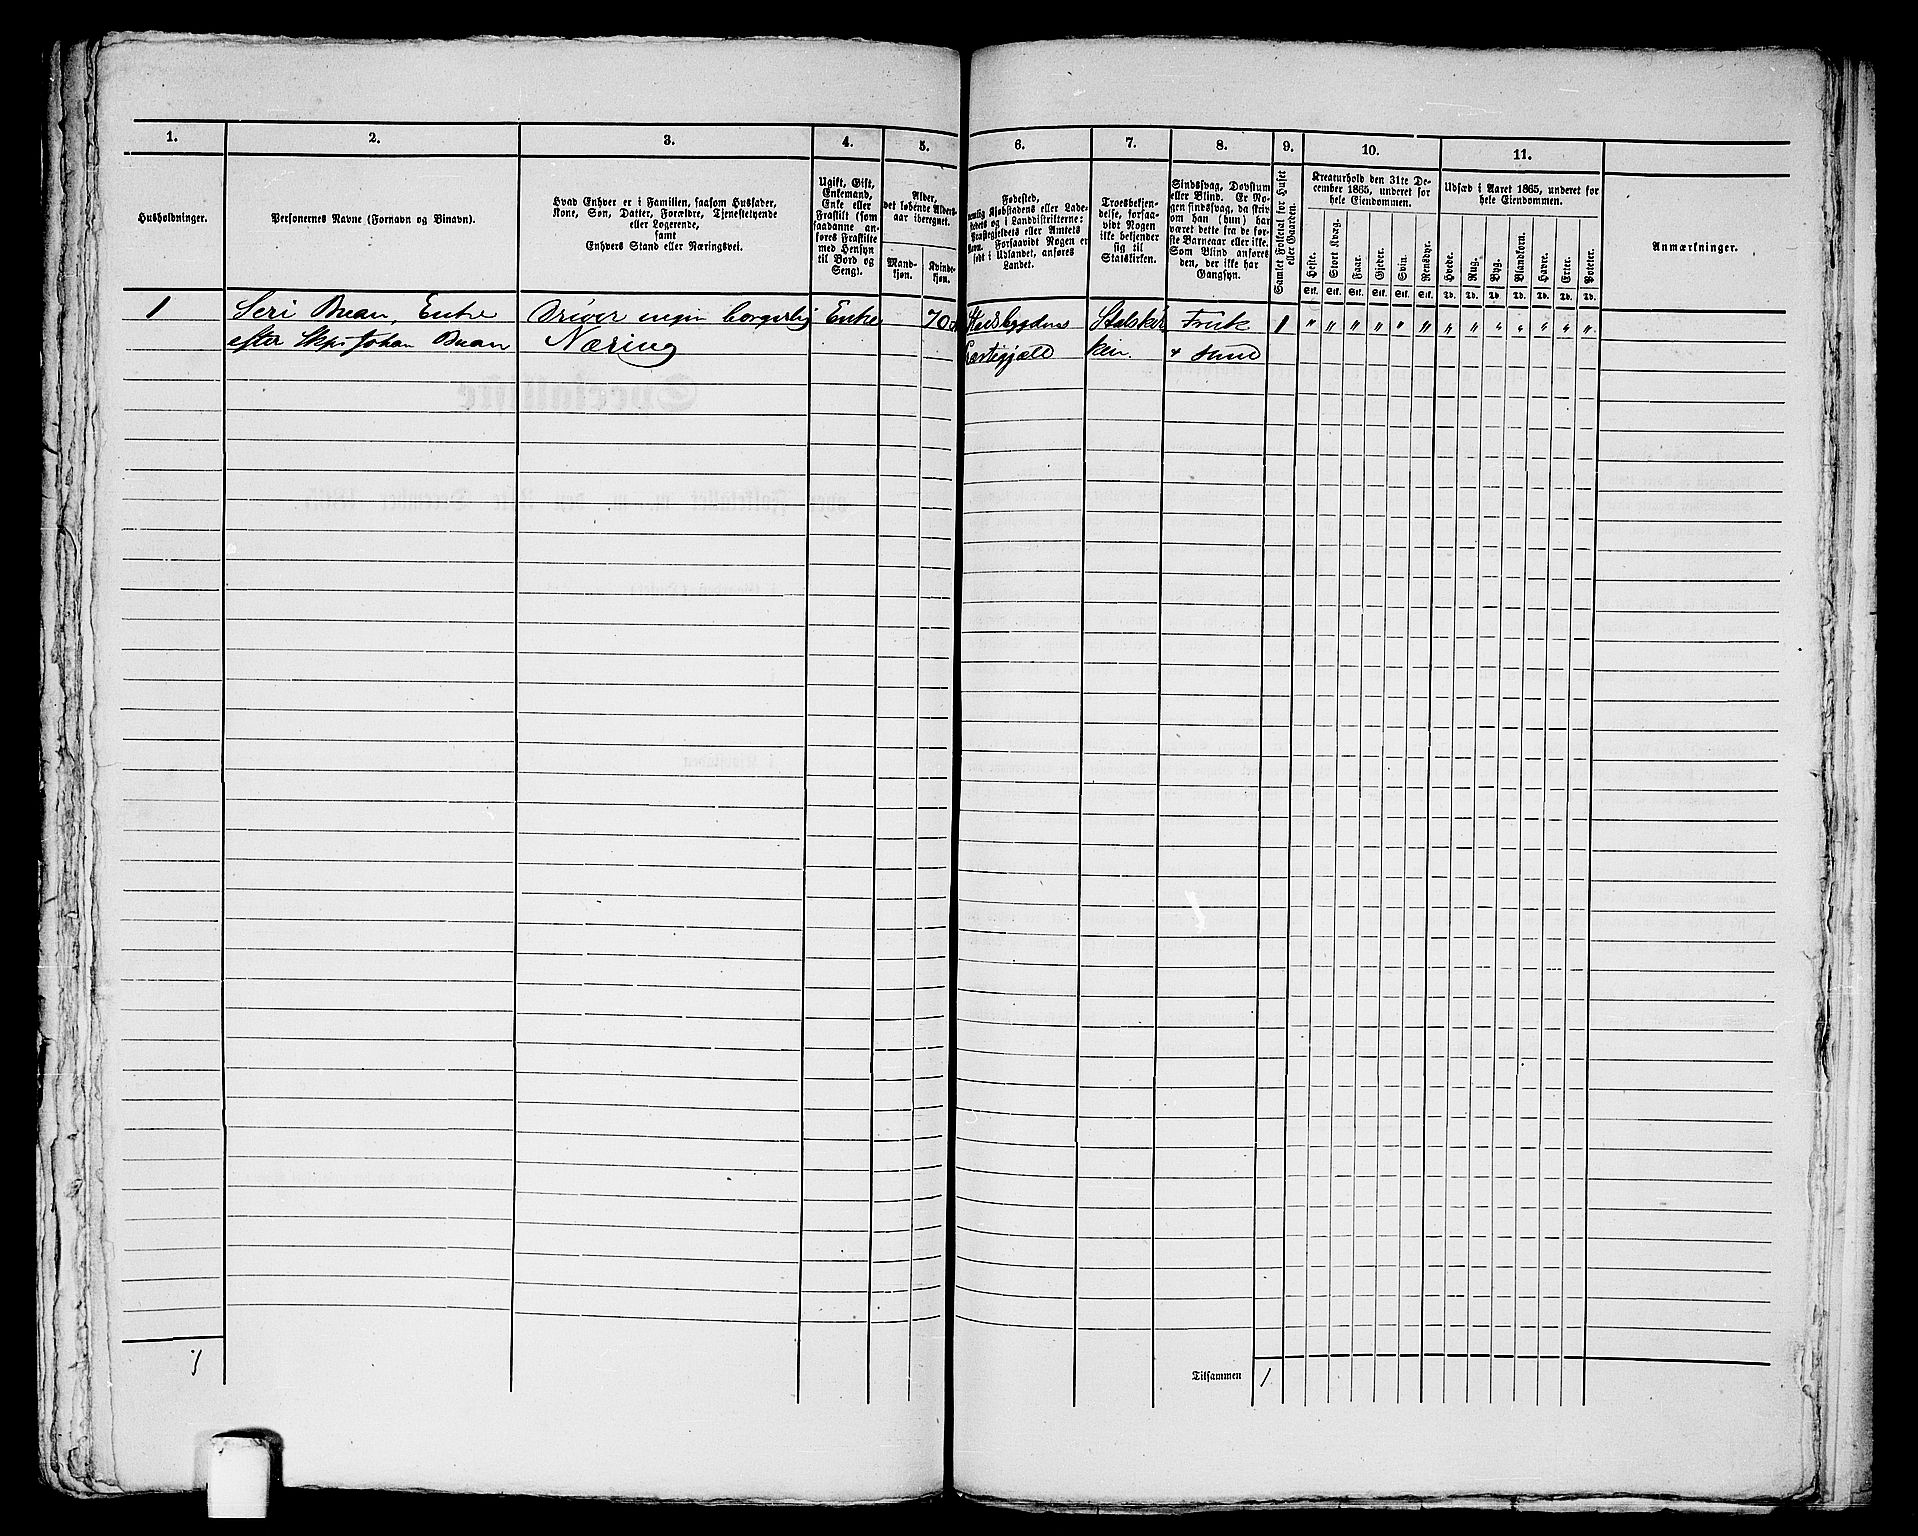 1. 2. 3. 4. 5. 6. 7. 8. 9. 10. 11.
Husholdninger.
Personernes Navne (Fornavn og Binavn).
Hvad Enhver er i Familien, saasom Husfader,
Kone, Søn, Datter, Forældre, Tjenestetyende
eller Logerende,
samt
Enhvers Stand eller Næringsvei.
Ugift, Gift,
Enkemand,
Enke eller
Fraskilt (som
saadanne an-
føres Fraskilte
med Hensyn
til Bord og
Seng).
Alder,
det løbende Alders-
aar iberegnet.
Mand-
kjøn.
Kvinde-
kjøn.
Fødested,
nemlig Kjøbstadens eller Lade-
stedets og i Landdistrikterne:
Præstegjeldets eller Amtets
Navn. Forsaavidt Nogen er
født i Udlandet, anføres
Landet.
Troesbekjen-
delse, forsaa-
vidt Nogen
ikke bekjender
sig til
Statskirken.
Sindssvag, Døvstum
eller Blind. Er No-
gen sindssvag, da skriv
om han (hun) har
været dette fra de før-
ste Barneaar eller ikke.
Som Blind anføres
den, der ikke har
Gangsyn.
Samlet Folketal for Huset
eller Gaarden.
Kreaturhold den 31te De-
cember 1865, underet for
hele Eiendommen.
Heste. Stort Kvæg. Faar. Gjeder. Svin. Rensdyr.
Stk. Stk. Stk. Stk. Stk. Stk.
Udsæd i Aaret 1865, underet for
hele Eiendommen.
Hvede. Rug. Byg. Blandkorn. Havre. Erter. Poteter.
Td. Td. Td. Td. Td. Td. Td.
Anmærkninger.
1 Seri Buan, Enke Driver ingen borgerlig Enke 70 Stadsbygdens Statskir Frisk 1 " " " " " " " " " " " " "
efter Skps Johan Buan Næring ken. + sund
1
Tilsammen 1